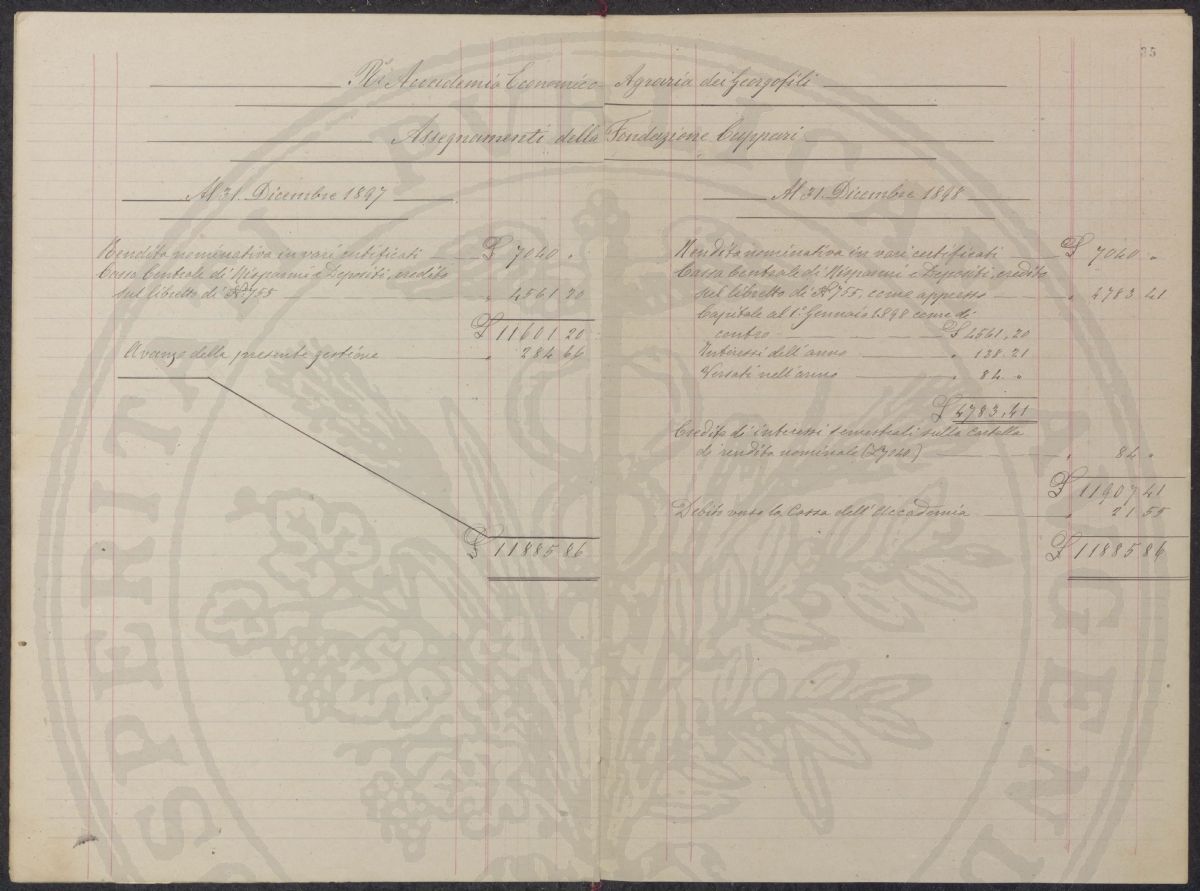 35
Rle Accademia Economico Agraria dei Georgofili
Assegnamenti della Fondazione Cuppari
Al 31. Dicembre 1897
Rendita nominativa in vari certificati £ 7040 "
Cassa Centrale di Risparmi e Depositi, credito
sul libretto di No 755 " 4561 20
£ 11601 20
Avanzo della presente gestione " 284 66
£ 11885 86
Al 31. Dicembre 1898
Rendita nominativa in vari certificati £ 7040 "
Cassa Centrale di Risparmi e Depositi, credito
sul libretto di No 755, come appresso " 4783 41
Capitale al 1° Gennaio 1898 come di
contro £ 4561,20
Interessi dell'anno " 138 21
Versati nell'anno " 84 "
£ 4783,41
Credito di interessi semestrali sulla Cartella
di rendita nominale (£ 7040) " 84 "
£ 11907 41
Debito verso la Cassa dell'Accademia " 21 55
£ 11885 86
PROSPERITATI PVBLICAE AVGENDAE